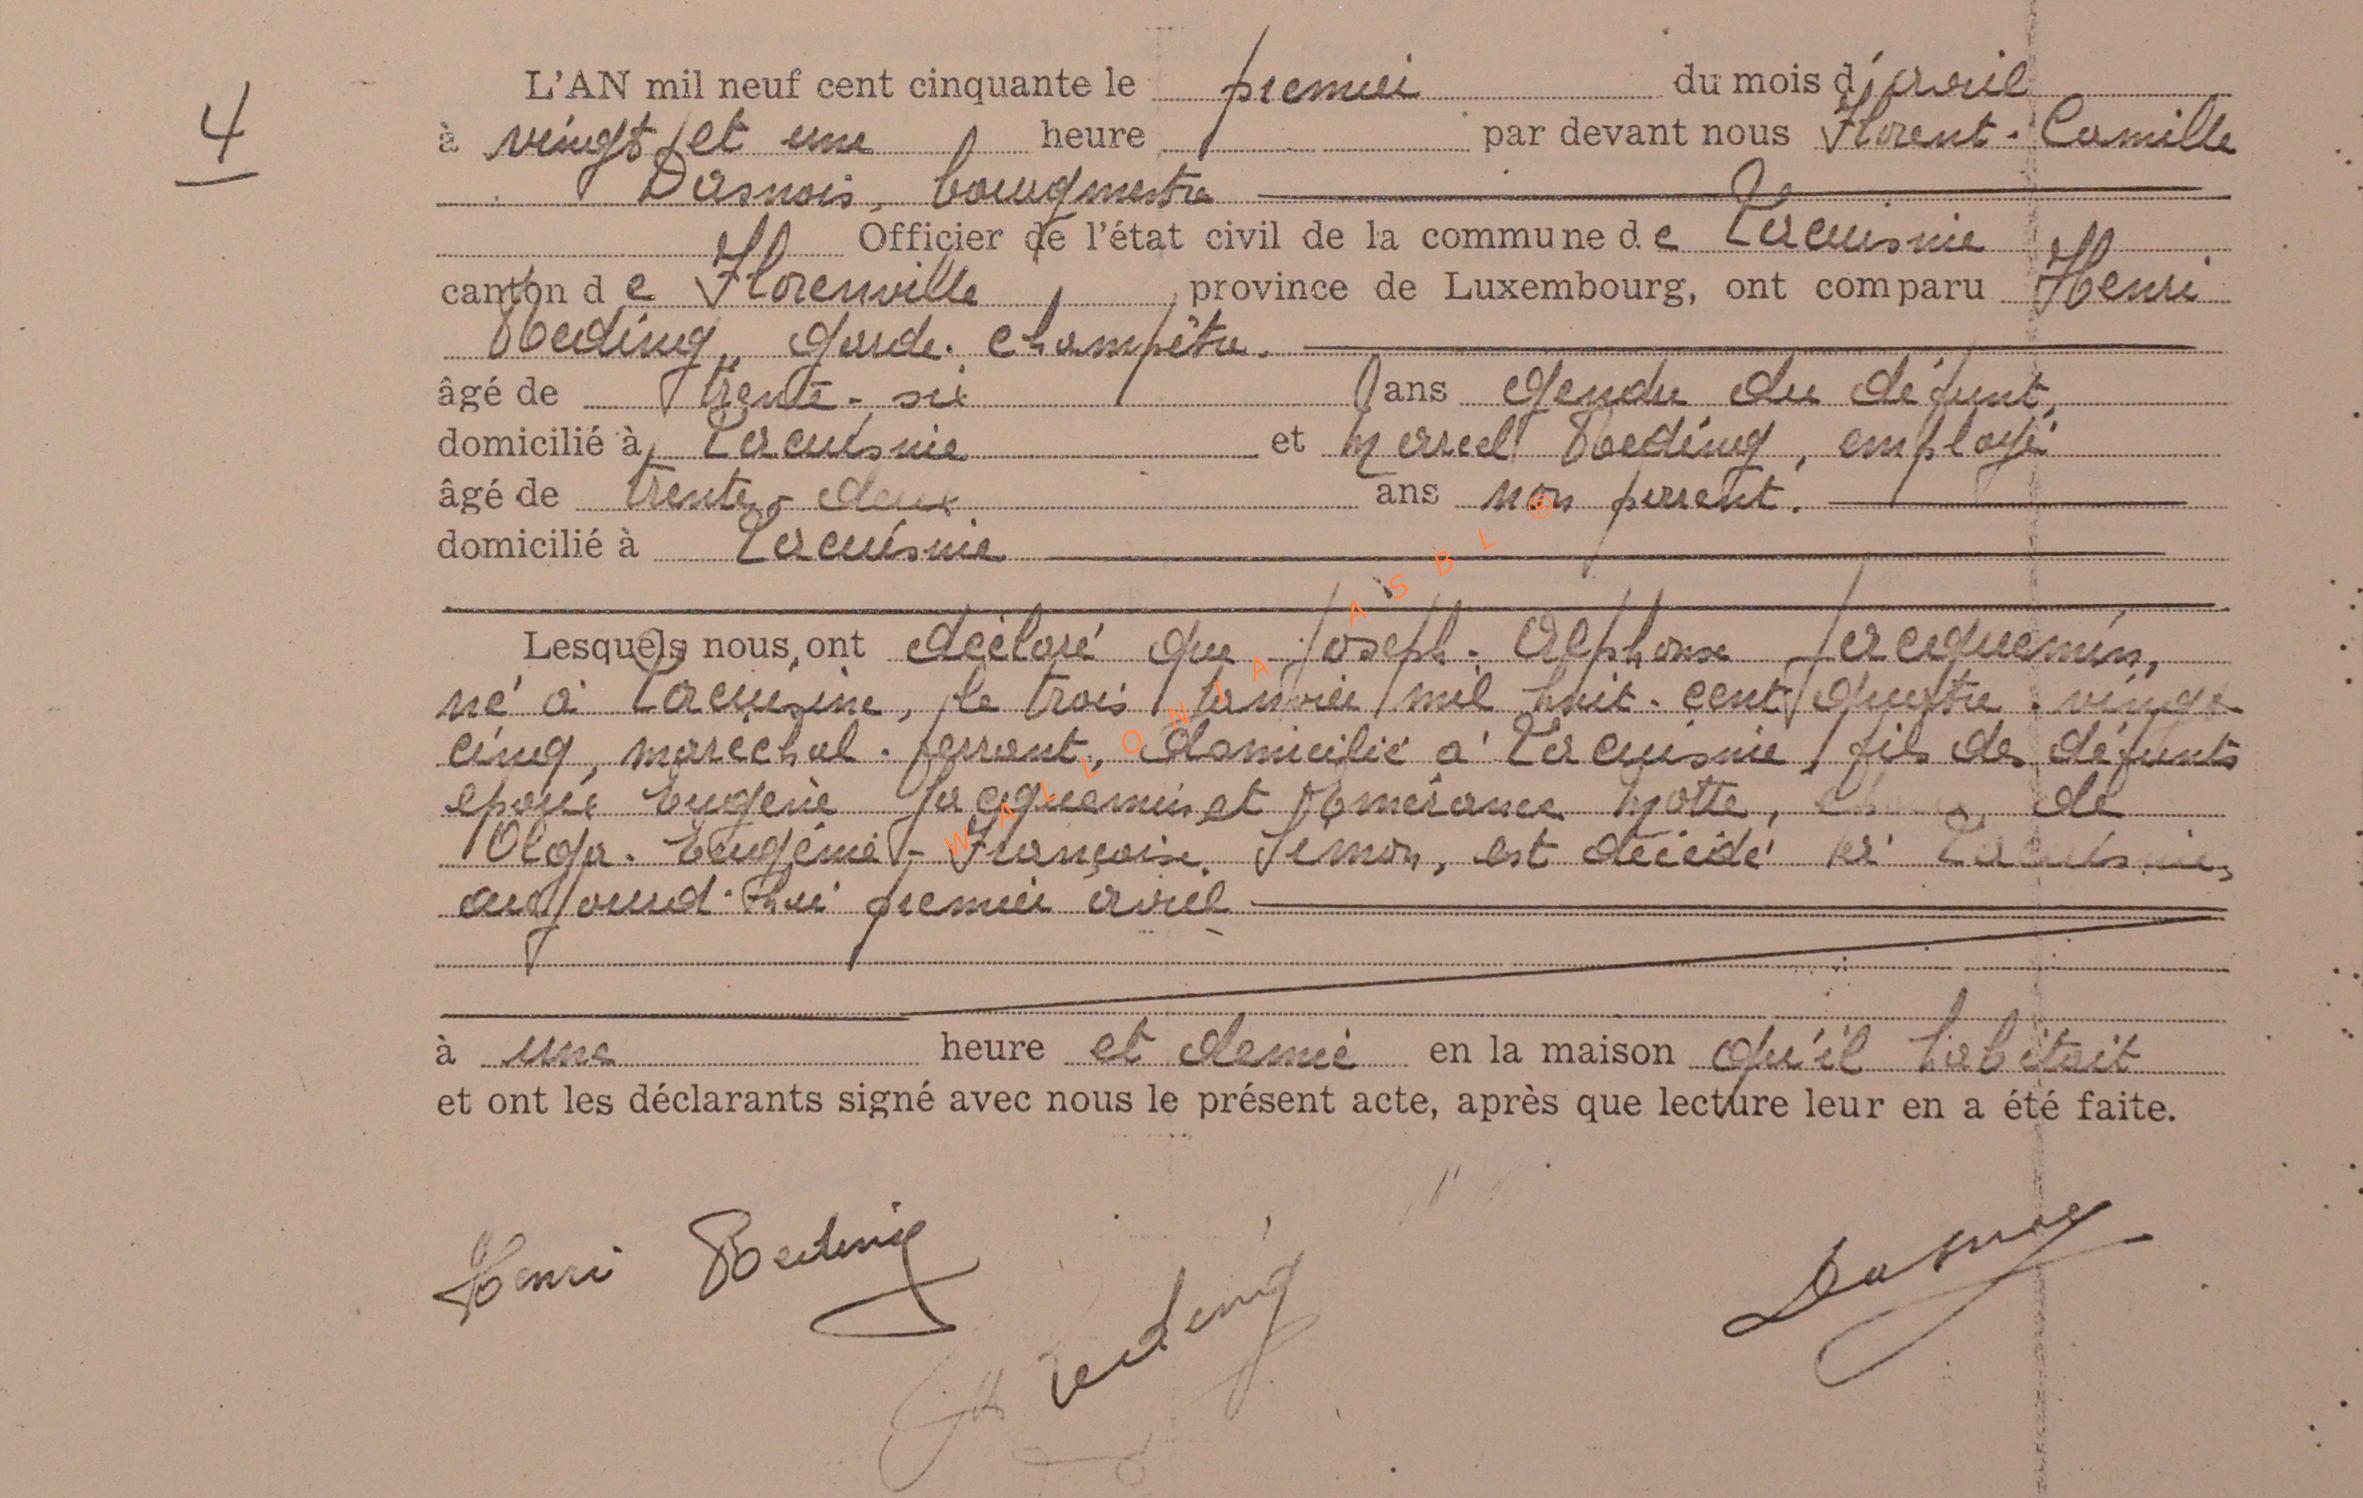 4
L'AN mil neuf cent cinquante le premier du mois d'avril
à vingt et une heure par devant nous Florent-Camille
Dasnois, bourgmestre
Officier de l'état civil de la commune de Lacuisine
canton de Florenville, province de Luxembourg, ont comparu Henri
Reding, garde-champêtre.
âgé de trente-six ans gendre du défunt,
domicilié à Lacuisine et Marcel Reding, employé
âgé de trente-deux ans non parent.
domicilié à Lacuisine
Lesquels nous ont déclaré que Joseph-Alphonse Jacquemin,
né à Lacuisine, le trois janvier mil huit-cent quatre-vingt
cinq, maréchal-ferrant, domicilié à Lacuisine, fils des défunts
époux Eugène Jacquemin et Émérance Motte, de
Olga-Eugénie-Françoise Simon, est décédé à Lacuisine,
aujourd'hui premier avril
à une heure et demie en la maison qu'il habitait
et ont les déclarants signé avec nous le présent acte, après que lecture leur en a été faite.
Henri Reding
Reding
Dasnoy
WALLONIA ASBL ©